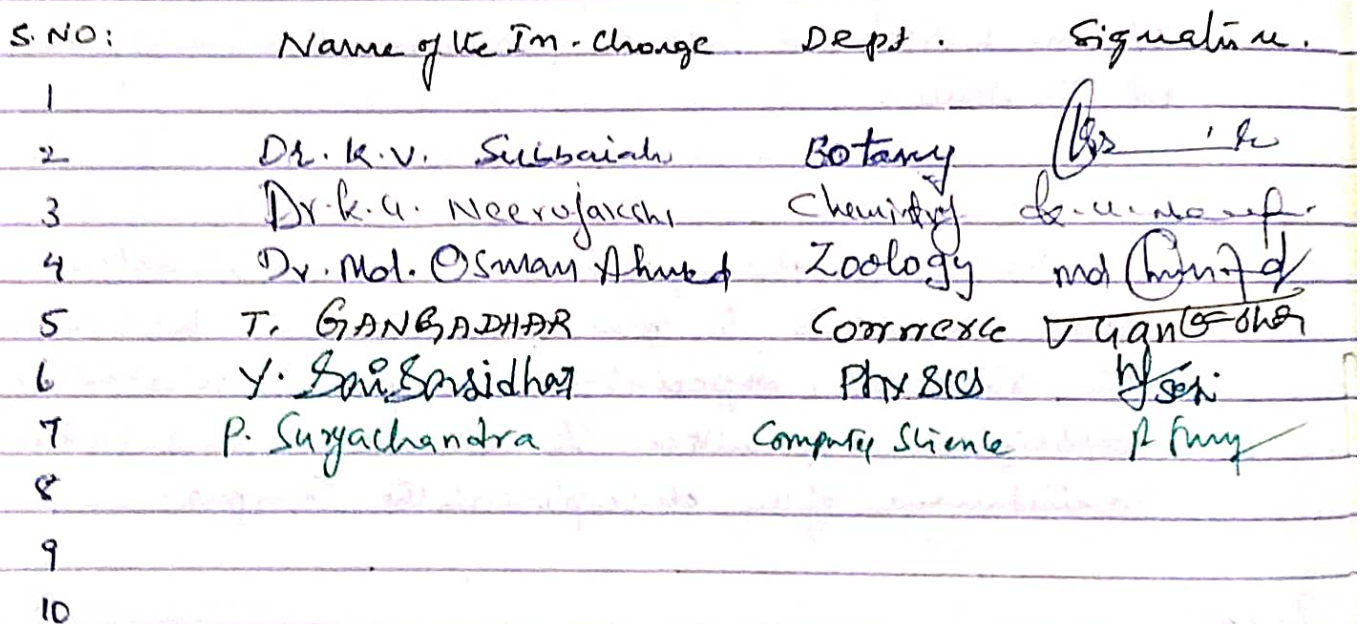 S. NO: Name of the In-charge Dept. Signature.
1
2 Dr. K.V. Subbaiah Botany
3 Dr. K.G. Neerajakshi Chemistry
4 Dr. Md. Osman Ahmed Zoology md
5 T. GANGADHAR Commerce
6 Y. Sai Sasidhar Physics
7 P. Suryachandra Computer Science
8
9
10